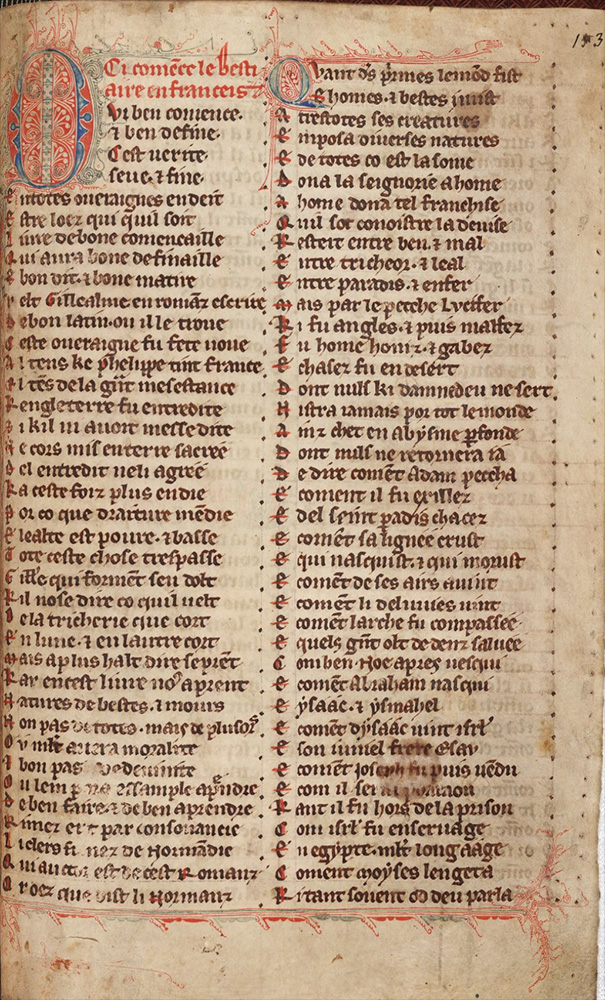 153
Ci comēce le besti
aire en franceis
Qui ben comence
⁊ ben define
C est uerite
seue ⁊ fine
E n totes oueraignes en deit
E stre loez qui quil soit
L iure de bone comencaille
Q ui aura bone definaille
E bon dit ⁊ bone matire
v elt Gillealme en romanz escrire
D e bon latin ou il le troue
C este oueraigne fu fete noue
A l tens ke phelippe tint france
A l tēs de la gūt mesestance
K engleterre fu entredite
S i kil ni auoit messe dite
N e cors mis en terre sacree
D el entredit ne li agree
K a ceste foiz plus en die
P or co que draiture mēdie
E lealte est poure ⁊ basse
T ote ceste chose trespasse
G ill'e qui formēt sen dolt
K il nose dire co quil uelt
D e la tricherie que cort
E n lune ⁊ en lautre cort
M ais a plus halt dire se prēt
K ar en cest liure no9 aprent
N atures de bestes ⁊ mours
N on pas de totes mais de plusors
O v mlt auera moralite
bon pas de deuinite
O u lem p essample apēdre
D e ben faire ⁊ de ben aprendre
R imez ert par consonancie
L i clers fu nez de Normādie
Q ui auctor est de cest Romanz
O r oez que dist li Normanz
Quant ds p'mes le mōd fist
E homes ⁊ bestes i mist
A trestotes ses creatures
E nposa diuerses natures
E de totes co est la some
D ona la seignorie a home
A home dona tel franchise
Q uil sot conoistre la deuise
K esteit entre ben ⁊ mal
E ntre tricheor ⁊ leal
E ntre paradis ⁊ enfer
M ais par le pecche Lucifer
K i fu angles ⁊ puis malfez
F u home honiz ⁊ gabez
E chasez fu en desert
D ont nuls ki damnedeu ne sert
N istra iamais por tot le monde
A inz chet en abysme pfonde
D ont nuls ne retornera ia
D e dire comēt Adam peccha
E coment il fu exillez
E del seint padis chacez
E comēt sa lignee crust
E qui nasquist ⁊ qui morust
E comēt de ses airs auint
E comēt li deluuies uint
E comēt larche fu compassee
E quels gūt olt dedenz saluee
C om ben Noe apres uesqui
E comēt Abraham nasqui
E ysaac ⁊ ysmahel
E comēt dysaac uint isrl
E son iumel frere Esau
E comēt ioseph fu puis uēdu
E com il sei
K ant il fu hors de la prison
C om isrl fu en seruage
E n egypte mlt long aage
C oment moyses lengeta
K i tant souent od deu parla